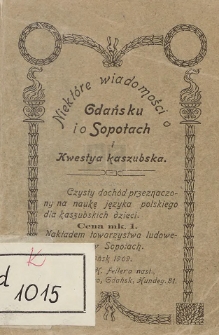 Niektóre wiadomości o
Gdańsku
i o Sopotach
i
Kwestya kaszubska.
Czysty dochód przeznaczo-
ny na naukę języka polskiego
dla kaszubskich dzieci.
Cena mk. 1.
Nakładem towarzystwa ludowe-
w Sopotach.
K. Fellera nast.
Gdańsk, Hundeg. 81.
K
d
1015